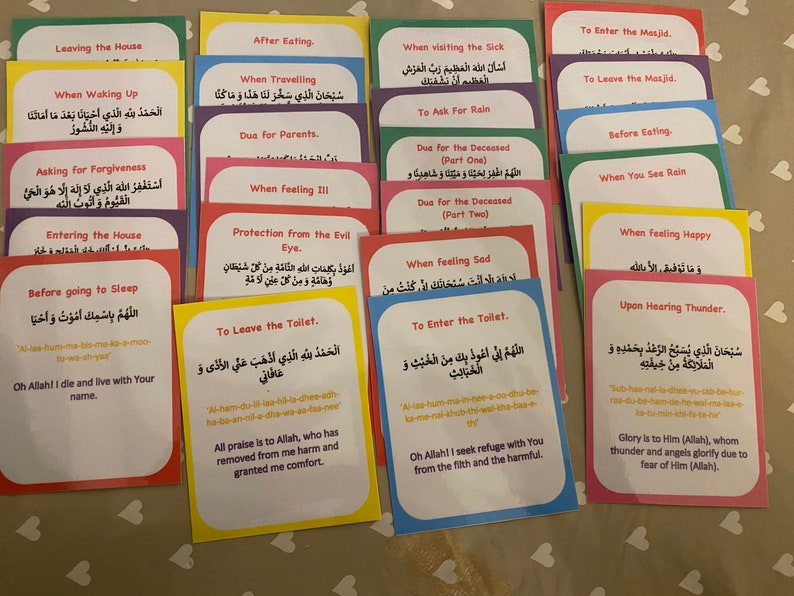 Leaving the House
When Waking Up
اَلْحَمْدُ لِلَّهِ الَّذِي أَحْيَانَا بَعْدَ مَا أَمَاتَنَا
وَ إِلَيْهِ النُّشُورُ
Asking for Forgiveness
أَسْتَغْفِرُ اللهَ الَّذِي لَآ إِلَهَ إِلَّا هُوَ الْحَيُّ
الْقَيُّومُ وَ أَتُوبُ إِلَيْهِ
Entering the House
Before going to Sleep
اَللَّهُمَّ بِاسْمِكَ أَمُوْتُ وَ أَحْيَا
'Al-laa-hum-ma-bis-me-ka-a-moo-
tu-wa-ah-yaa'
Oh Allah! I die and live with Your
name.
After Eating.
When Travelling
سُبْحَانَ الَّذِي سَخَّرَ لَنَا هَذَا وَ مَا كُنَّا
Dua for Parents.
When feeling Ill
Protection from the Evil
Eye.
أَعُوْذُ بِكَلِمَاتِ اللهِ التَّامَّةِ مِنْ كُلِّ شَيْطَانٍ
وَهَامَّةٍ وَ مِنْ كُلِّ عَيْنٍ لَا مَّةٍ
To Leave the Toilet.
اَلْحَمْدُ لِلَّهِ الَّذِي أَذْهَبَ عَنِّي الْأَذَى وَ
عَافَانِي
'Al-ham-du-lil-laa-hil-la-dhee-adh-
ha-ba-an-nil-a-dha-wa-aa-faa-nee'
All praise is to Allah, who has
removed from me harm and
granted me comfort.
When visiting the Sick
أَسْأَلُ اللهَ الْعَظِيمَ رَبَّ الْعَرْشِ
الْعَظِيمِ أَنْ يَشْفِيَكَ
To Ask For Rain
Dua for the Deceased
(Part One)
اَللَّهُمَّ اغْفِرْ لِحَيِّنَا وَ مَيِّتِنَا وَ شَاهِدِنَا وَ
Dua for the Deceased
(Part Two)
When feeling Sad
لَا إِلَهَ إِلَّا أَنْتَ سُبْحَانَكَ إِنِّي كُنْتُ مِنَ
To Enter the Toilet.
اَللَّهُمَّ إِنِّي أَعُوذُ بِكَ مِنَ الْخُبْثِ وَ
الْخَبَائِثِ
'Al-laa-hum-ma-in-nee-a-oo-dhu-be-
ka-me-nal-khub-thi-wal-kha-baa-e-
thi'
Oh Allah! I seek refuge with You
from the filth and the harmful.
To Enter the Masjid.
To Leave the Masjid.
Before Eating.
When You See Rain
When feeling Happy
وَ مَا تَوْفِيقِي إِلَّا بِاللهِ
Upon Hearing Thunder.
سُبْحَانَ الَّذِي يُسَبِّحُ الرَّعْدُ بِحَمْدِهِ وَ
الْمَلَائِكَةُ مِنْ خِيفَتِهِ
'Sub-haa-nal-la-dhee-yu-sab-be-hur-
raa-du-be-ham-de-he-wal-ma-laa-e-
ka-tu-min-khi-fa-te-he'
Glory is to Him (Allah), whom
thunder and angels glorify due to
fear of Him (Allah).